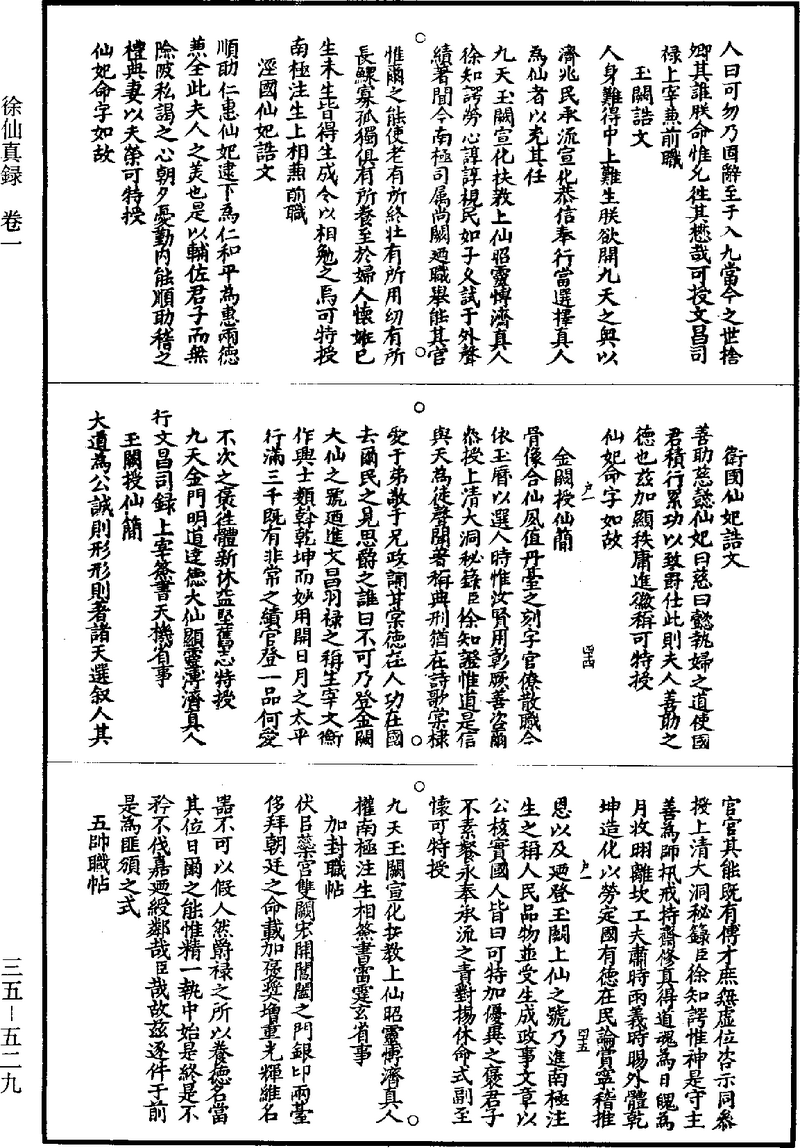 徐仙真録　卷一
人曰可勿乃固辭至于八九當今之世捨
卿其誰朕命惟允往其懋哉可授文昌司
祿上宰兼前職
玉闕誥文
人身難得中上難生朕欲開九天之奧以
濟兆民承流宣化恭信奉行當選擇真人
為仙者以充其任
九天玉闕宣化扶教上仙昭靈博濟真人
徐知諤勞心諄諄視民如子父試于外聲
績著聞今南極司屬尚闕廼職舉能其官
惟爾之能使老有所終壯有所用幼有所
長鰥寡孤獨俱有所養至於婦人懷姙已
生未生皆得生成今以相勉之焉可特授
南極注生上相兼前職
涇國仙妃誥文
順助仁惠仙妃逮下為仁和平為惠兩德
兼全此夫人之美也是以輔佐君子而無
險陂私謁之心朝夕憂勤內能順助稽之
禮典妻以夫榮可特授
仙妃命字如故
衛國仙妃誥文
善助慈懿仙妃曰慈曰懿執婦之道使國
君積行累功以致爵仕此則夫人善助之
德也茲加顯秩庸進徽稱可特授
仙妃命字如故
戶一
四十四
金闕授仙簡
骨像合仙夙值丹臺之刻字官僚散職今
依玉曆以選人時惟汝賢用彰厥善咨爾
恭授上清大洞秘籙臣徐知證惟道是信
與天為徒聲聞著稱典刑猶在詩歌棠棣
愛于弟敬于兄政誦甘棠德在人功在國
去爾民之見思爵之誰曰不可乃登金闕
大仙之號廼進文昌羽祿之稱生宰文衡
作興士類斡乾坤而妙用開日月之太平
行滿三千既有非常之績官登一品何愛
不次之褒往體新休益堅舊志特授
九天金門明道達德大仙顯靈溥濟真人
行文昌司錄上宰簽書天機省事
玉闕授仙簡
大道為公誠則形形則著諸天選叙人其
官官其能既有傅才庶無虛位咨示同叅
授上清大洞秘籙臣徐知諤惟神是守主
善為師祇戒持齋修真得道魂為日魄為
月收明離坎工夫肅時雨義時暘外體乾
坤造化以勞定國有德在民論賞寧稽推
戶一
四十五
恩以及廼登玉闕上仙之號乃進南極注
生之稱人民品物並受生成政事文章以
公核實國人皆曰可特加優異之褒君子
不素餐永奉承流之責對揚休命式副至
懷可特授
九天玉闕宣化扶教上仙昭靈博濟真人
權南極注生相簽書雷霆玄省事
加封職帖
伏㠯蘂宮雙闕宏開閶闔之門銀印兩臺
侈拜朝廷之命載加褒獎增重光輝維名
器不可以假人然爵祿之所以養德名當
其位曰爾之能惟精一執中始是終是不
矜不伐嘉廼綬鄰哉臣哉故茲逐件于前
是為匪頒之式
五帥職帖
三五－五二九